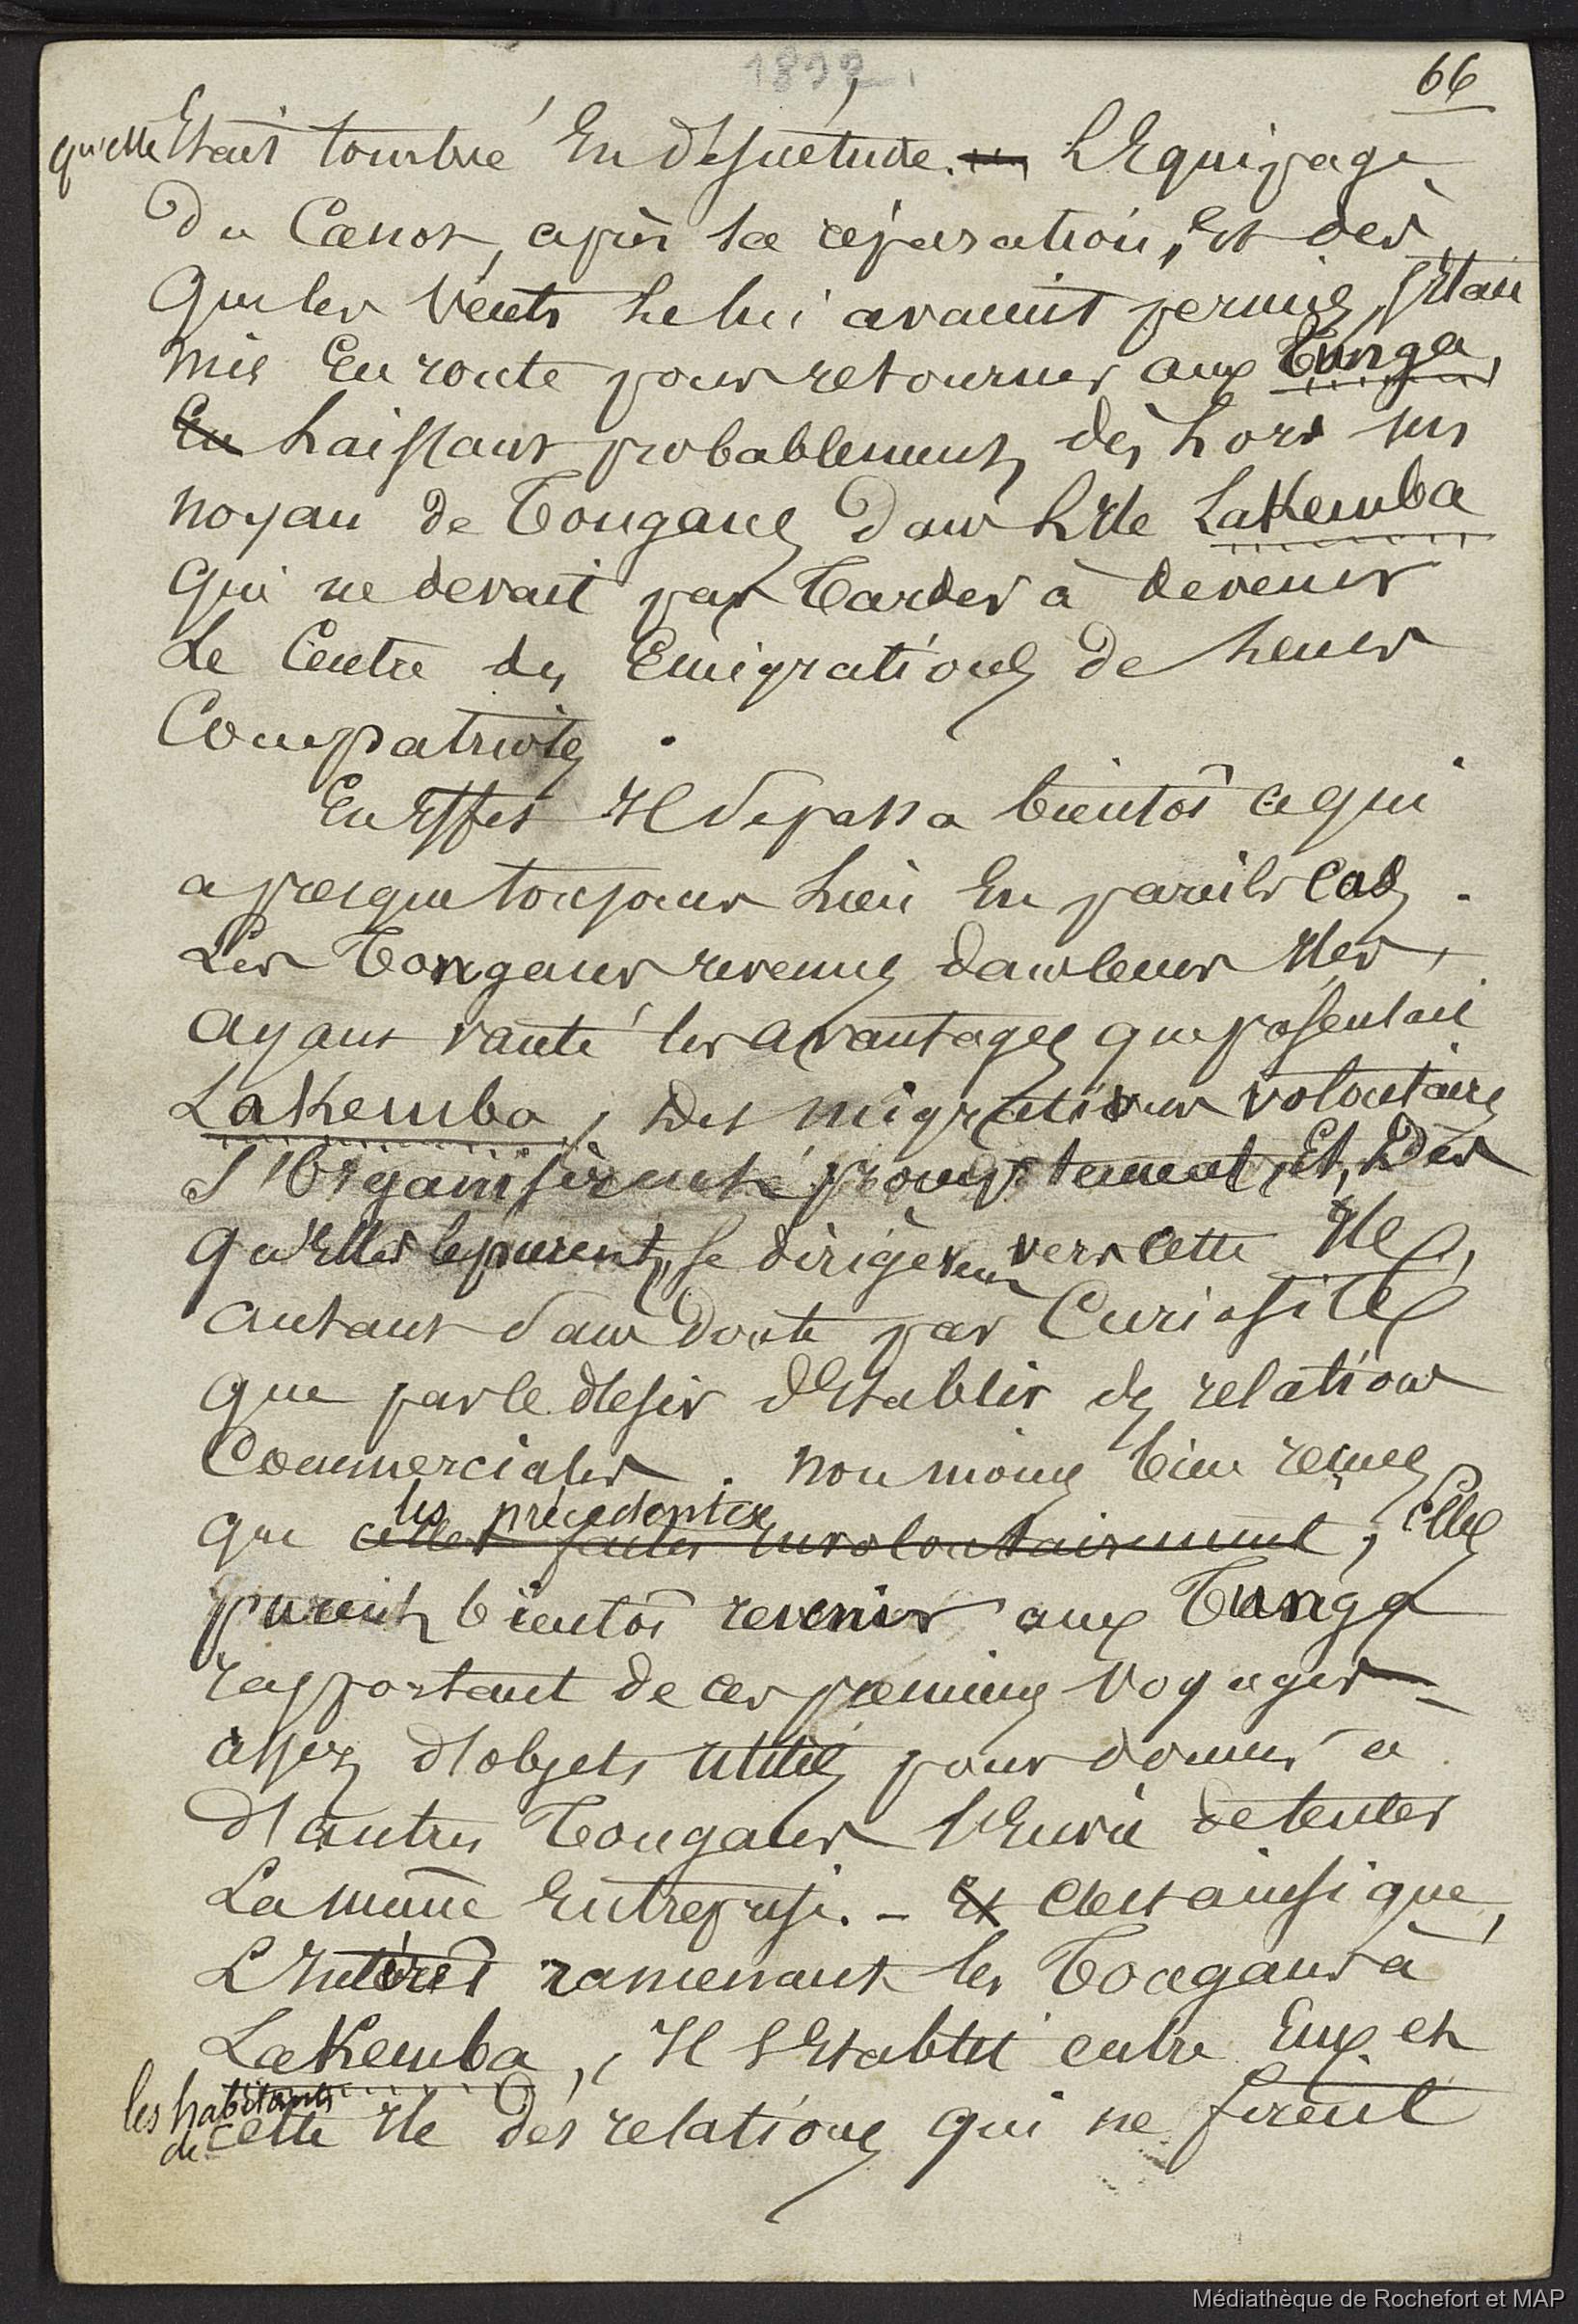 66
qu'elle Etait tombée En désuétude. L'Equipage
Du Canot, après sa réparation, Et dès
Que les Vents le lui avaient permis, s'Etait
mis En route pour retourner aux Tunga,
En Laissant probablement, dès Lors un
noyau de Tongans Dans L'Ile Lakemba
Qui ne devait pas Tarder à devenir
Le Centre des Emigrations de Leurs
Compatriotes.
En Effet Il Se passa bientôt ce qui
a presque toujours Lieu En pareils Cas.
Les Tongans revenus dans leurs Iles,
Ayant vanté les Avantages que présentait
Lakemba, Des migrations volontaires
S'Organisèrent promptement, Et, Dès
Qu'Elles le purent, se dirigèrent vers cette Ile,
autant Sans Doute par Curiosité
que par le désir d'Etablir des relations
Commerciales. Non moins bien reçues
les précédentes
que celles faites involontairement, Elles
purent bientôt revenir aux Tunga
rapportant de ces premiers Voyages
assez d'objets utiles pour donner à
d'autres Tongans l'Envie de tenter
La même Entreprise. - Et c'est ainsi que,
L'Intérêt ramenant les Tongans à
Lakemba, Il S'Etablit entre Eux et
les habitants
de cette Ile des relations qui ne firent
Médiathèque de Rochefort et MAP